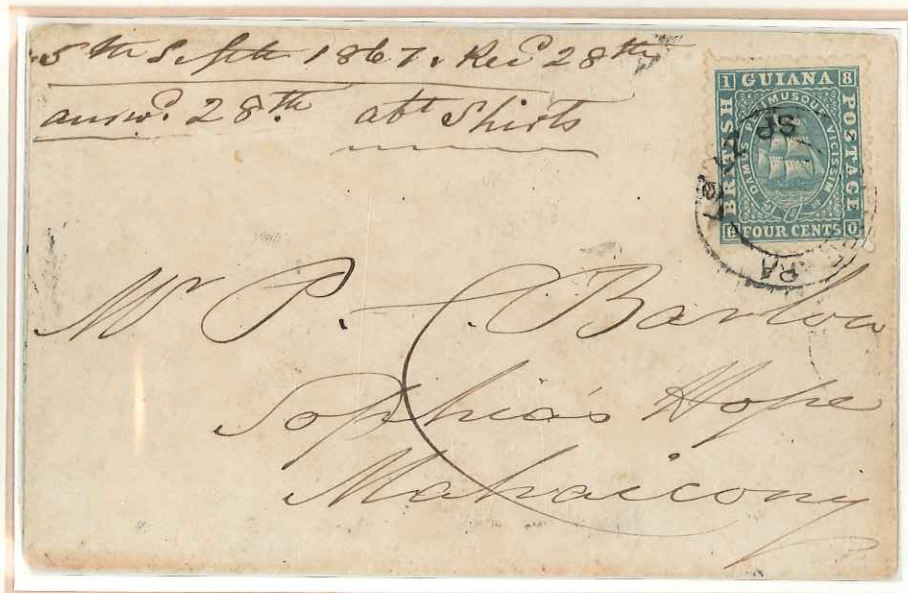 5th Septr 1867. Recd 28th
answd. 28th. abt Shirts
1 GUIANA 8
BRITISH
POSTAGE
DAMUS PETIMUSQUE VICISSIM
6 FOUR CENTS 0
SP
67
RA
Mr P. C. Barlow
Sophia's Hope
Mahaicony